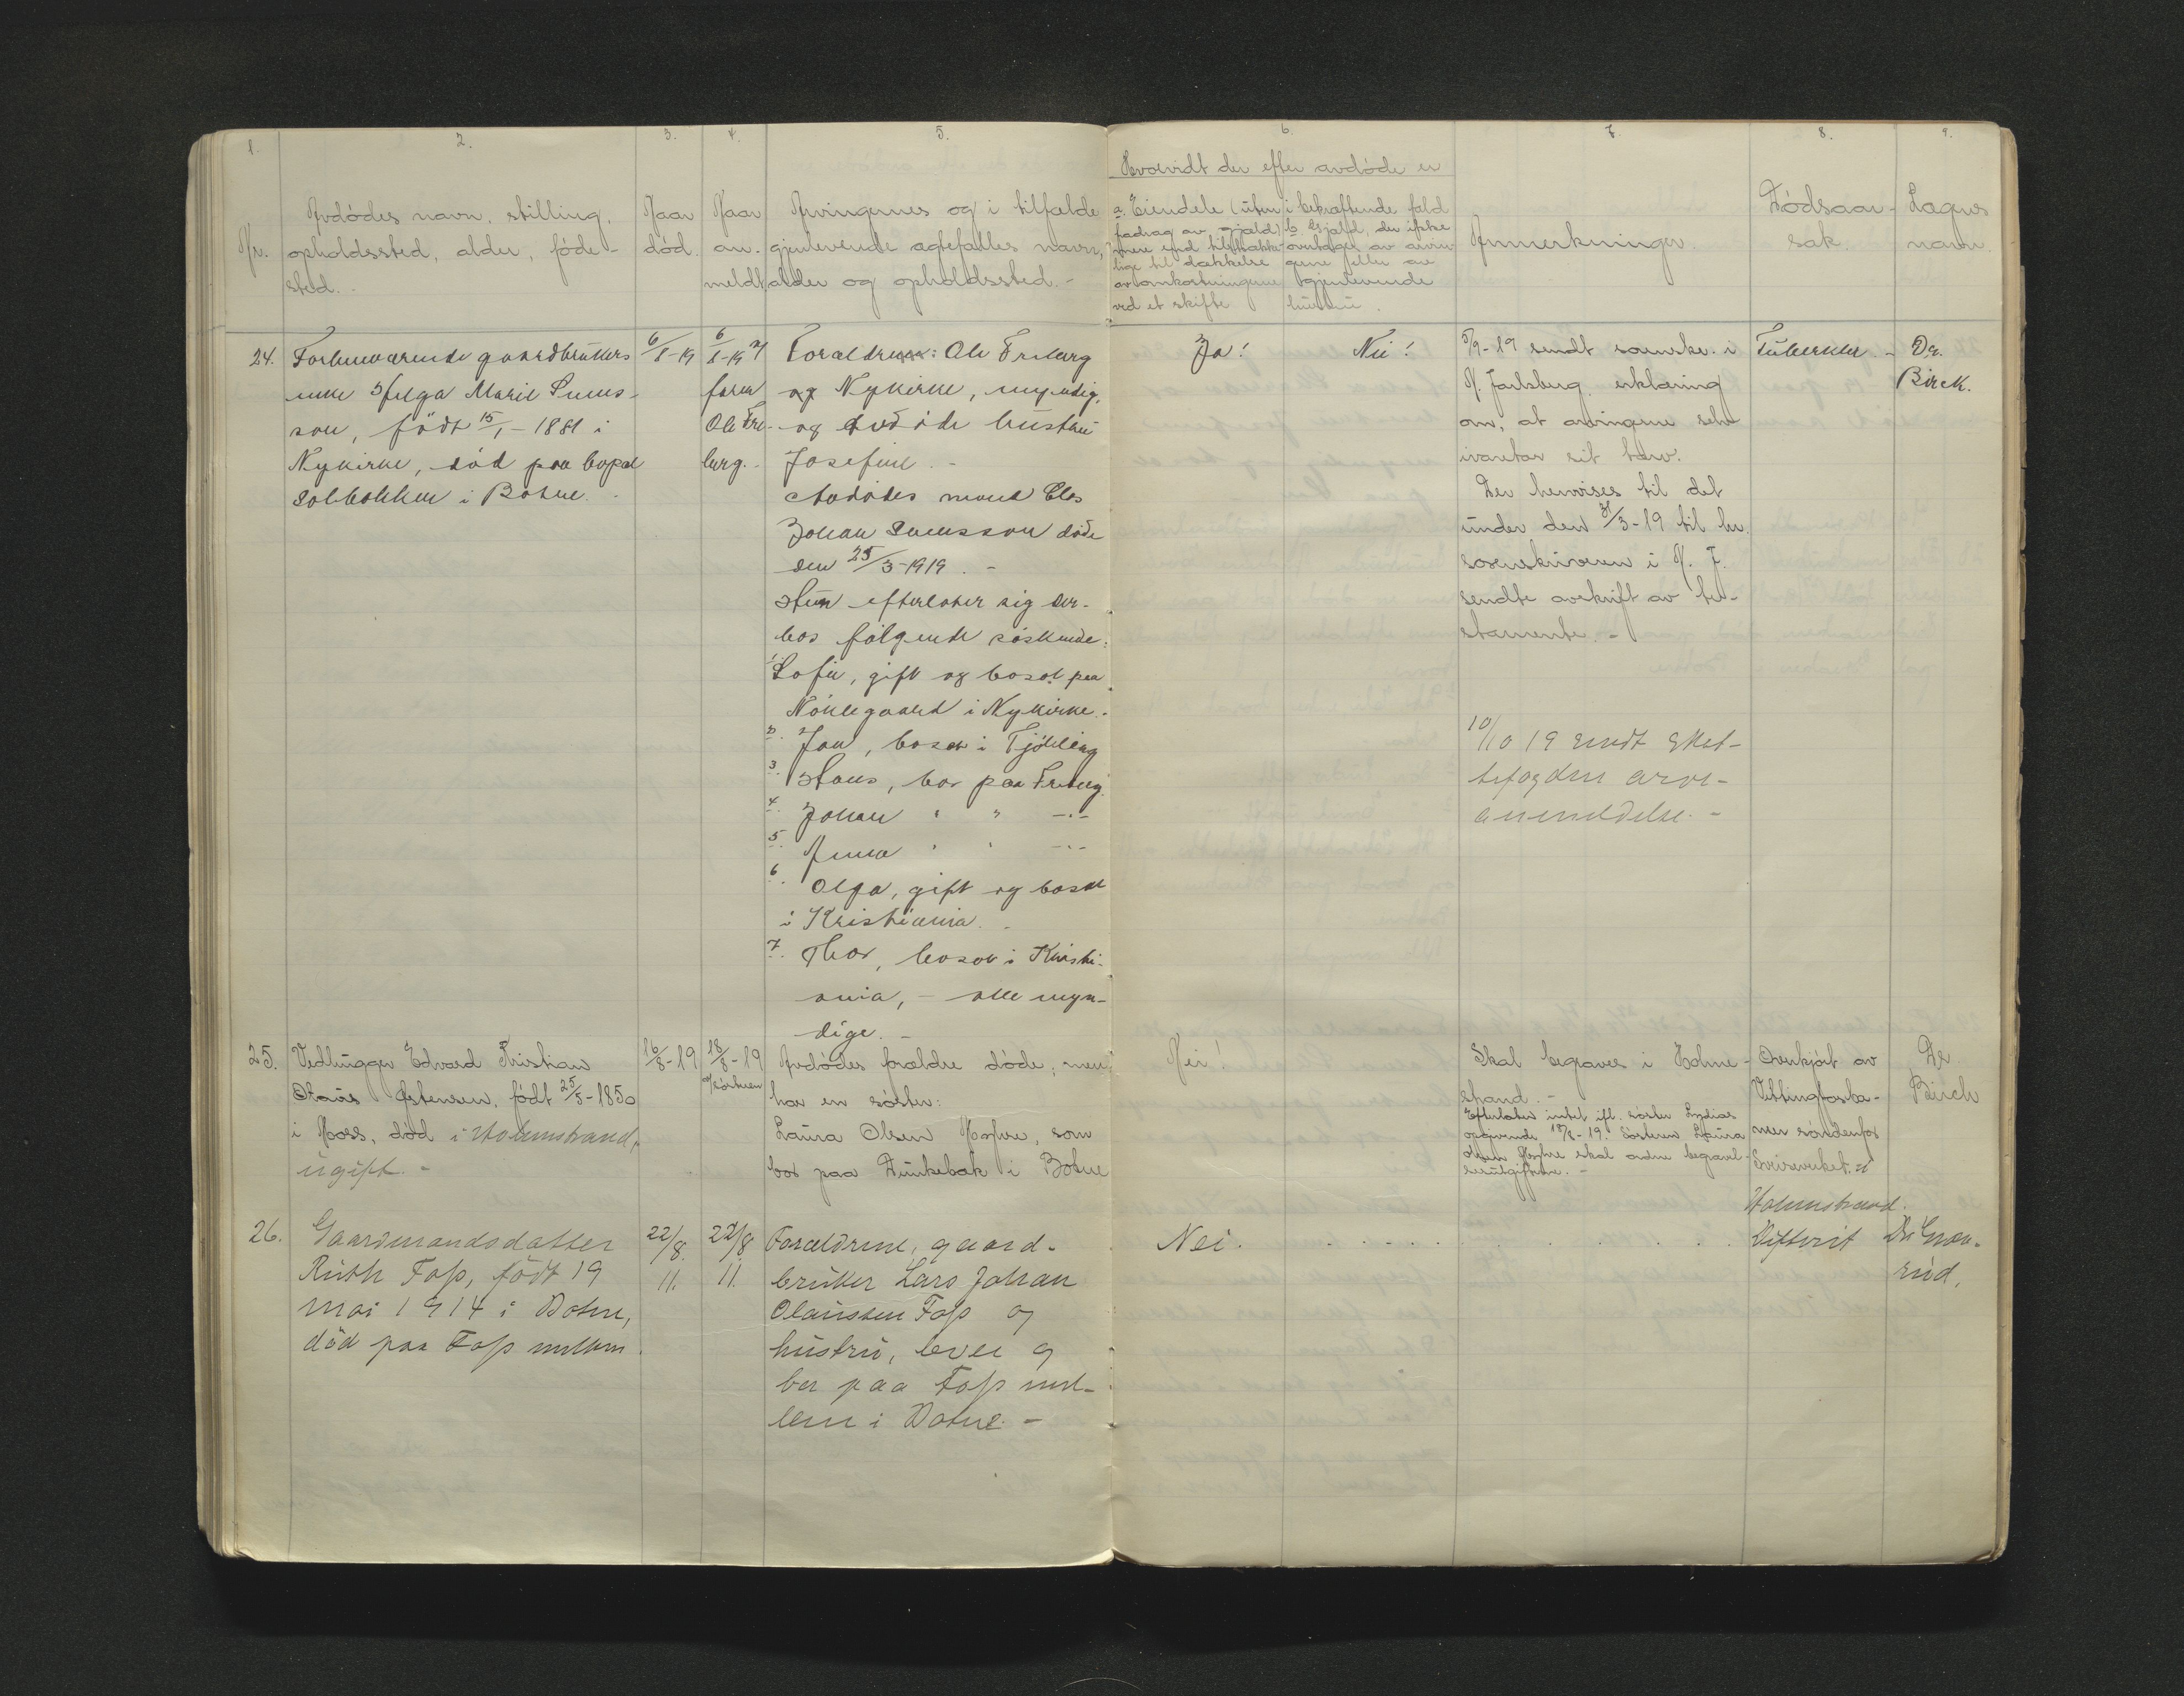 1.
2.
3.
4.
5.
6.
7.
8.
9.
Nr.
Avdødes navn, stilling,
opholdssted, alder, føde-
sted.-
Naar
død.
Naar
an-
meldt.
Arvingernes og i tilfælde
gjenlevende ægtefælles navn,
alder og opholdssted.-
Hvorvidt der efter avdøde er
a. Eiendele (uten
fradrag av gjæld)
mere end tilstrække-
lige til dækkelse
av omkostningerne
ved et skifte
i bekræftende fald
b. Gjæld, der ikke
overtages av arvin-
gene eller av
gjenlevende
hustru.
Anmerkninger.
Dødsaar-
sak.
Lægens
navn.
24.
Forhenværende gaardbrukers
enke Helga Marie Svens-
son, født 15/1-1881 i
Nykirke, død paa bopæl
Solbakken i Botne.
6/8-19
6/8-19 af
faren
Ole Fre-
berg.-
Forældrene: Ole Freberg
og Nykirke, myndig,
og avdøde hustru
Josefine.-
Avdødes mand Clas
Johan Svensson døde
den 25/3-1919.-
Hun efterlater sig der-
hos følgende søskende:
1. Sofie, gift og bosat paa
Nøklegaard i Nykirke.-
2. Jan, bosat i Tjølling
3. Hans, bor paa Freberg.
4. Johan " " -"-
5. Anna " " -"-
6. Olga, gift og bosat
i Kristiania.-
7. Thor, bosat i Kristi-
ania, - alle myn-
dige.-
Ja!
Nei!
5/9-19 sendt sorenskr. i
N. Jarlsberg erklæring
om, at arvingerne selv
ivaretar sit tarv.
Der henvises til det
under den 31/3-19 til hr.
sorenskriveren i N. J.
sendte avskrift av te-
stamente.-
10/10 19 sendt Skat-
tefogden arve-
anmeldelse.-
Tuberkler.-
Dr.
Birck.
25.
Vedhugger Edvard Kristian
Olaus Østensen, født 25/5-1850
i Moss, død i Holmstrand,
ugift.-
16/8-19
18/8-19
af søsteren
Avdødes forældre døde, men
har en søster:
Laura Olsen , som
bor paa Dunkebæk i Botne
Nei!
Skal begraves i Holme-
strand.-
Efterlater intet ifl. søster Lydias
opgivende 18/8-19. Søsteren Laura
Olsen skal ordne begravel-
sesutgiftene.-
Overkjørt av
Vittingfosba-
nen søndenfor
i
Holmestrand.
Dr
Birch
26.
Gaardmandsdatter
Ruth Foss, født 19
mai 1914 i Botne,
død paa Foss mellem
22/8.
11.
22/8
11.
Forældrene, gaard-
bruker Lars Johan
Olaussen Foss og
hustru, lever og
bor paa Foss mel-
lem i Botne.-
Nei.
Difterit
Dr Grøn-
rud.